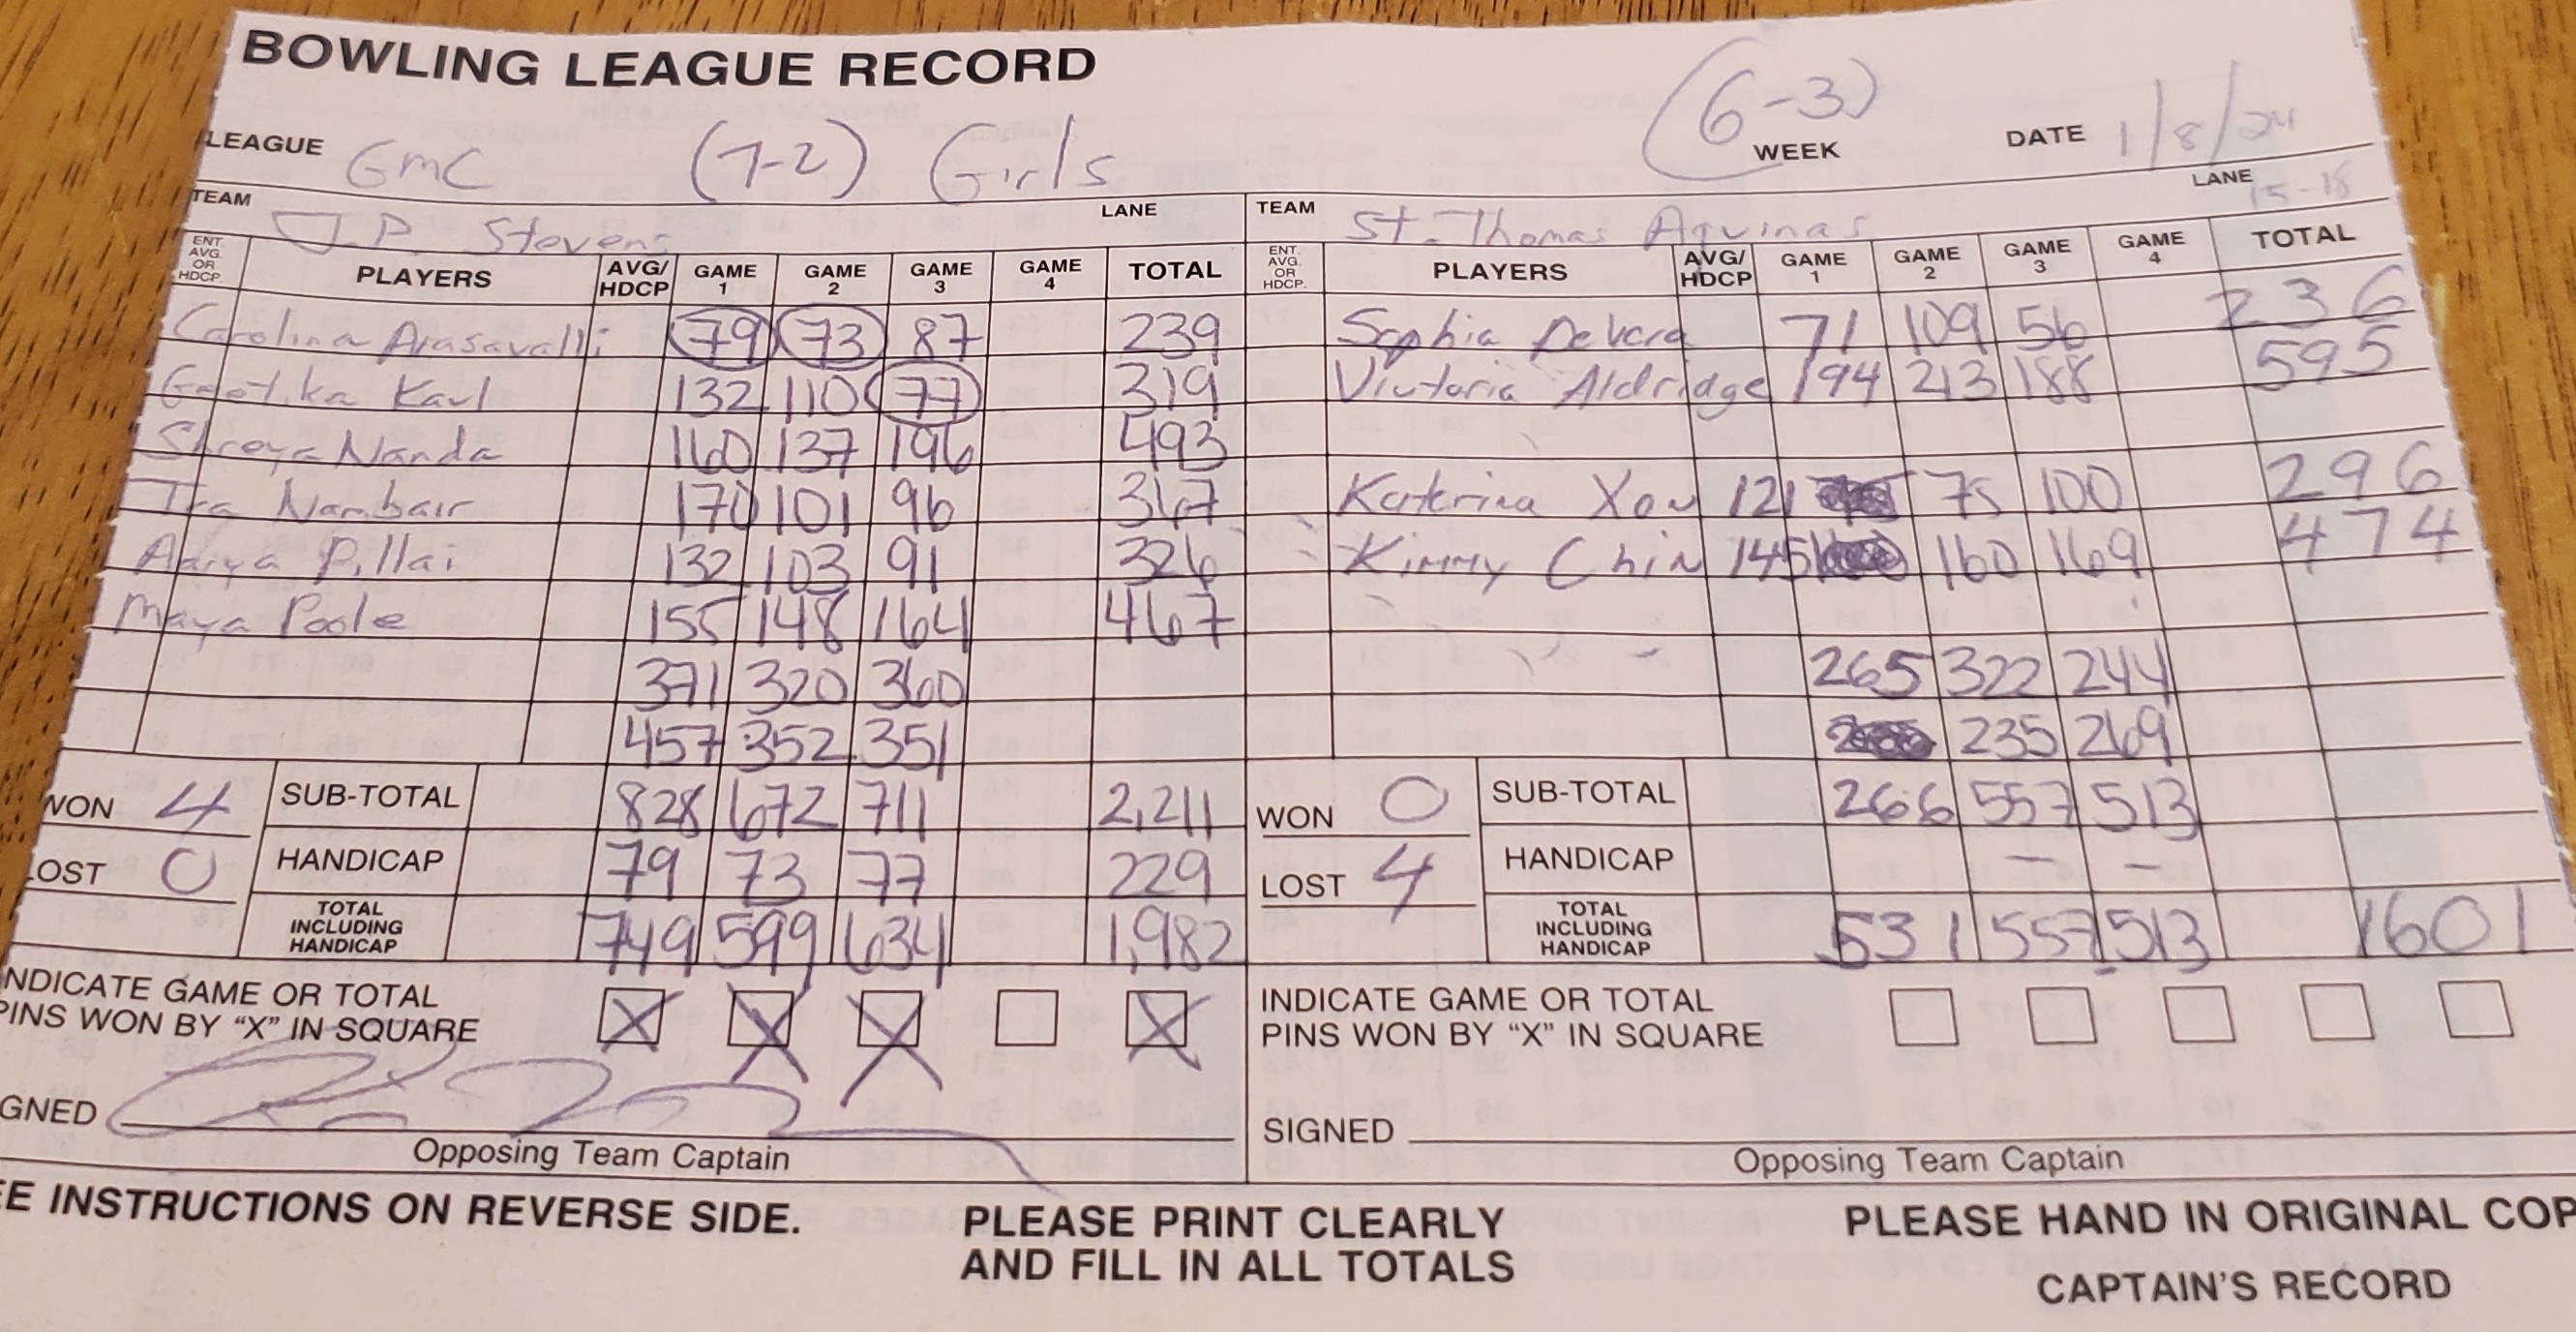 BOWLING LEAGUE RECORD
LEAGUE GMC (7-2) Girls (6-3) WEEK DATE 1/8/24
TEAM J.P. Stevens LANE TEAM St. Thomas Aquinas LANE 15-18
ENT. AVG. OR HDCP. PLAYERS AVG/ HDCP GAME 1 GAME 2 GAME 3 GAME 4 TOTAL ENT. AVG. OR HDCP. PLAYERS AVG/ HDCP GAME 1 GAME 2 GAME 3 GAME 4 TOTAL
Carolina Arasavalli 79 73 87 239 Sophia DeVera 71 109 56 236
Geetika Kaul 132 110 77 319 Victoria Aldridge 194 213 188 595
Shreya Nanda 160 137 196 493
Ira Nambair 170 101 96 367 Katerina Xou 121 75 100 296
Aariya Pillai 132 103 91 326 Kimmy Chin 145 160 169 474
Maya Poole 155 148 164 467
371 320 360 265 322 244
457 352 351 235 269
WON 4 SUB-TOTAL 828 672 711 2,211 WON 0 SUB-TOTAL 266 557 513
LOST 0 HANDICAP 79 73 77 229 LOST 4 HANDICAP - -
TOTAL INCLUDING HANDICAP 749 599 634 1,982 TOTAL INCLUDING HANDICAP 531 557 513 1601
INDICATE GAME OR TOTAL INDICATE GAME OR TOTAL
PINS WON BY “X” IN SQUARE X X X X PINS WON BY “X” IN SQUARE
GNED SIGNED
Opposing Team Captain Opposing Team Captain
EE INSTRUCTIONS ON REVERSE SIDE. PLEASE PRINT CLEARLY PLEASE HAND IN ORIGINAL COP
AND FILL IN ALL TOTALS CAPTAIN'S RECORD